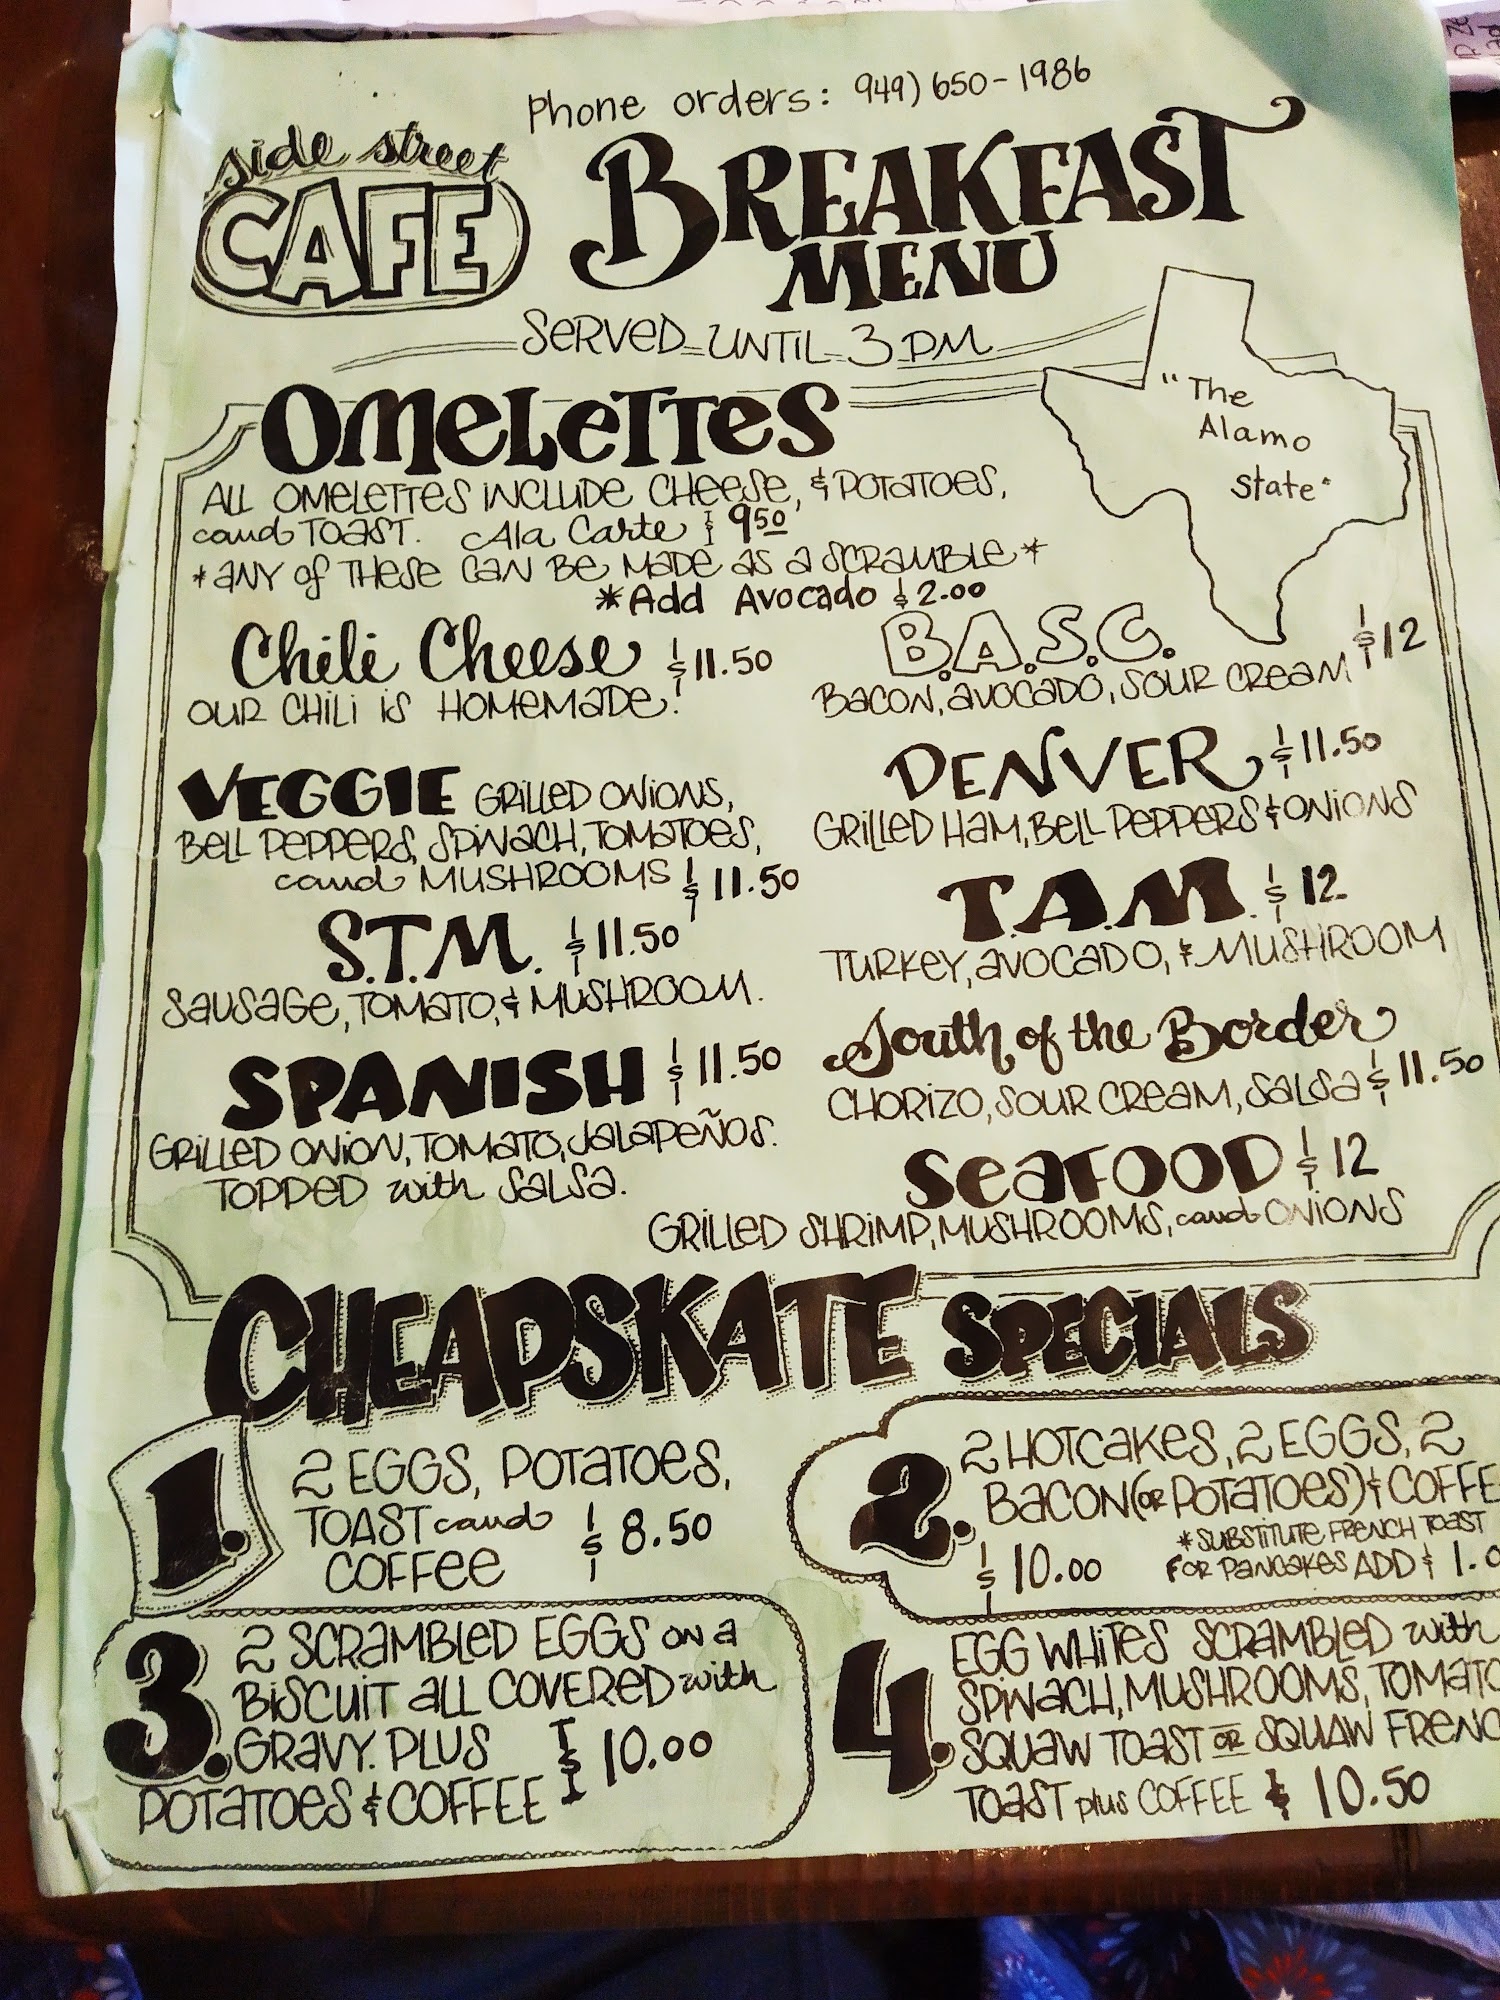 Phone orders: 949) 650-1986
side street
CAFE
BREAKFAST
MENU
SERVED UNTIL 3 PM
"The
Alamo
State"
OMELETTES
ALL OMELETTES INCLUDE CHEESE, & POTATOES,
and TOAST. Ala Carte $9.50
*ANY OF THESE CAN BE MADE AS A SCRAMBLE*
*Add Avocado $2.00
Chili Cheese $11.50
OUR CHILI IS HOMEMADE!
VEGGIE GRILLED ONIONS,
BELL PEPPERS, SPINACH, TOMATOES,
and MUSHROOMS $11.50
S.T.M. $11.50
SAUSAGE, TOMATO, & MUSHROOM.
SPANISH $11.50
GRILLED ONION, TOMATO, JALAPEÑOS.
TOPPED with SALSA.
B.A.S.C. $12
BACON, AVOCADO, SOUR CREAM
DENVER $11.50
GRILLED HAM, BELL PEPPERS & ONIONS
T.A.M. $12
TURKEY, AVOCADO, & MUSHROOM
South of the Border
CHORIZO, SOUR CREAM, SALSA $11.50
SEAFOOD $12
GRILLED SHRIMP, MUSHROOMS, and ONIONS
CHEAPSKATE SPECIALS
1. 2 EGGS, POTATOES,
TOAST and $8.50
COFFEE
2. 2 HOTCAKES, 2 EGGS, 2
BACON (OR POTATOES) & COFFE
*SUBSTITUTE FRENCH TOAST
$10.00 FOR PANCAKES ADD $1.0
3. 2 SCRAMBLED EGGS ON A
BISCUIT ALL COVERED with
GRAVY. PLUS $10.00
POTATOES & COFFEE
4. EGG WHITES SCRAMBLED with
SPINACH, MUSHROOMS, TOMATO
SQUAW TOAST OR SQUAW FRENC
TOAST plus COFFEE $10.50